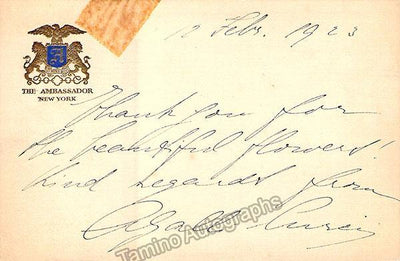 12 Febr. 1923
THE AMBASSADOR
NEW YORK
Thank you for
the beautiful flowers!
kind regards from
Galli-Curci
Tamino Autographs